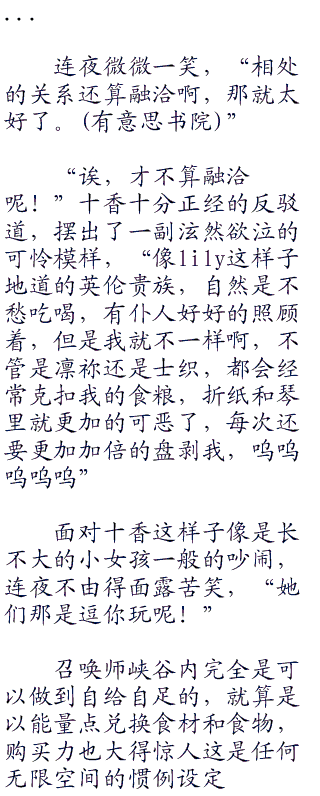 ...
连夜微微一笑，“相处
的关系还算融洽啊，那就太
好了。(有意思书院)”
“诶，才不算融洽
呢！”十香十分正经的反驳
道，摆出了一副泫然欲泣的
可怜模样，“像lily这样子
地道的英伦贵族，自然是不
愁吃喝，有仆人好好的照顾
着，但是我就不一样啊，不
管是凛祢还是士织，都会经
常克扣我的食粮，折纸和琴
里就更加的可恶了，每次还
要更加加倍的盘剥我，呜呜
呜呜呜”
面对十香这样子像是长
不大的小女孩一般的吵闹，
连夜不由得面露苦笑，“她
们那是逗你玩呢！”
召唤师峡谷内完全是可
以做到自给自足的，就算是
以能量点兑换食材和食物，
购买力也大得惊人这是任何
无限空间的惯例设定